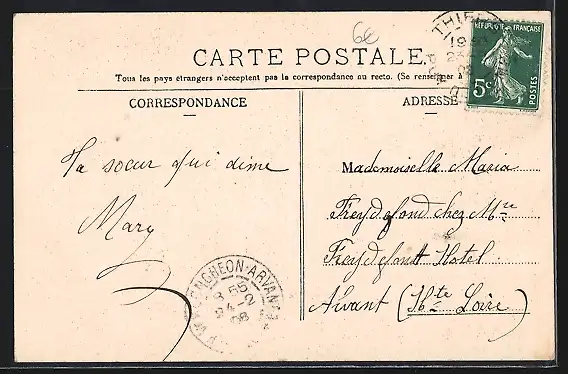 6e
CARTE POSTALE
Tous les pays étrangers n'acceptent pas la correspondance au recto. (Se renseigner à
CORRESPONDANCE
ADRESSE
RÉPUBLIQUE FRANÇAISE
5c
POSTES
THIE
19
Ta soeur qui t'aime
Mary
Mademoiselle Maria
Freydefond chez Mr
Freydefont Hotel
Alvant (Hte Loire)
8 55
24-2
08